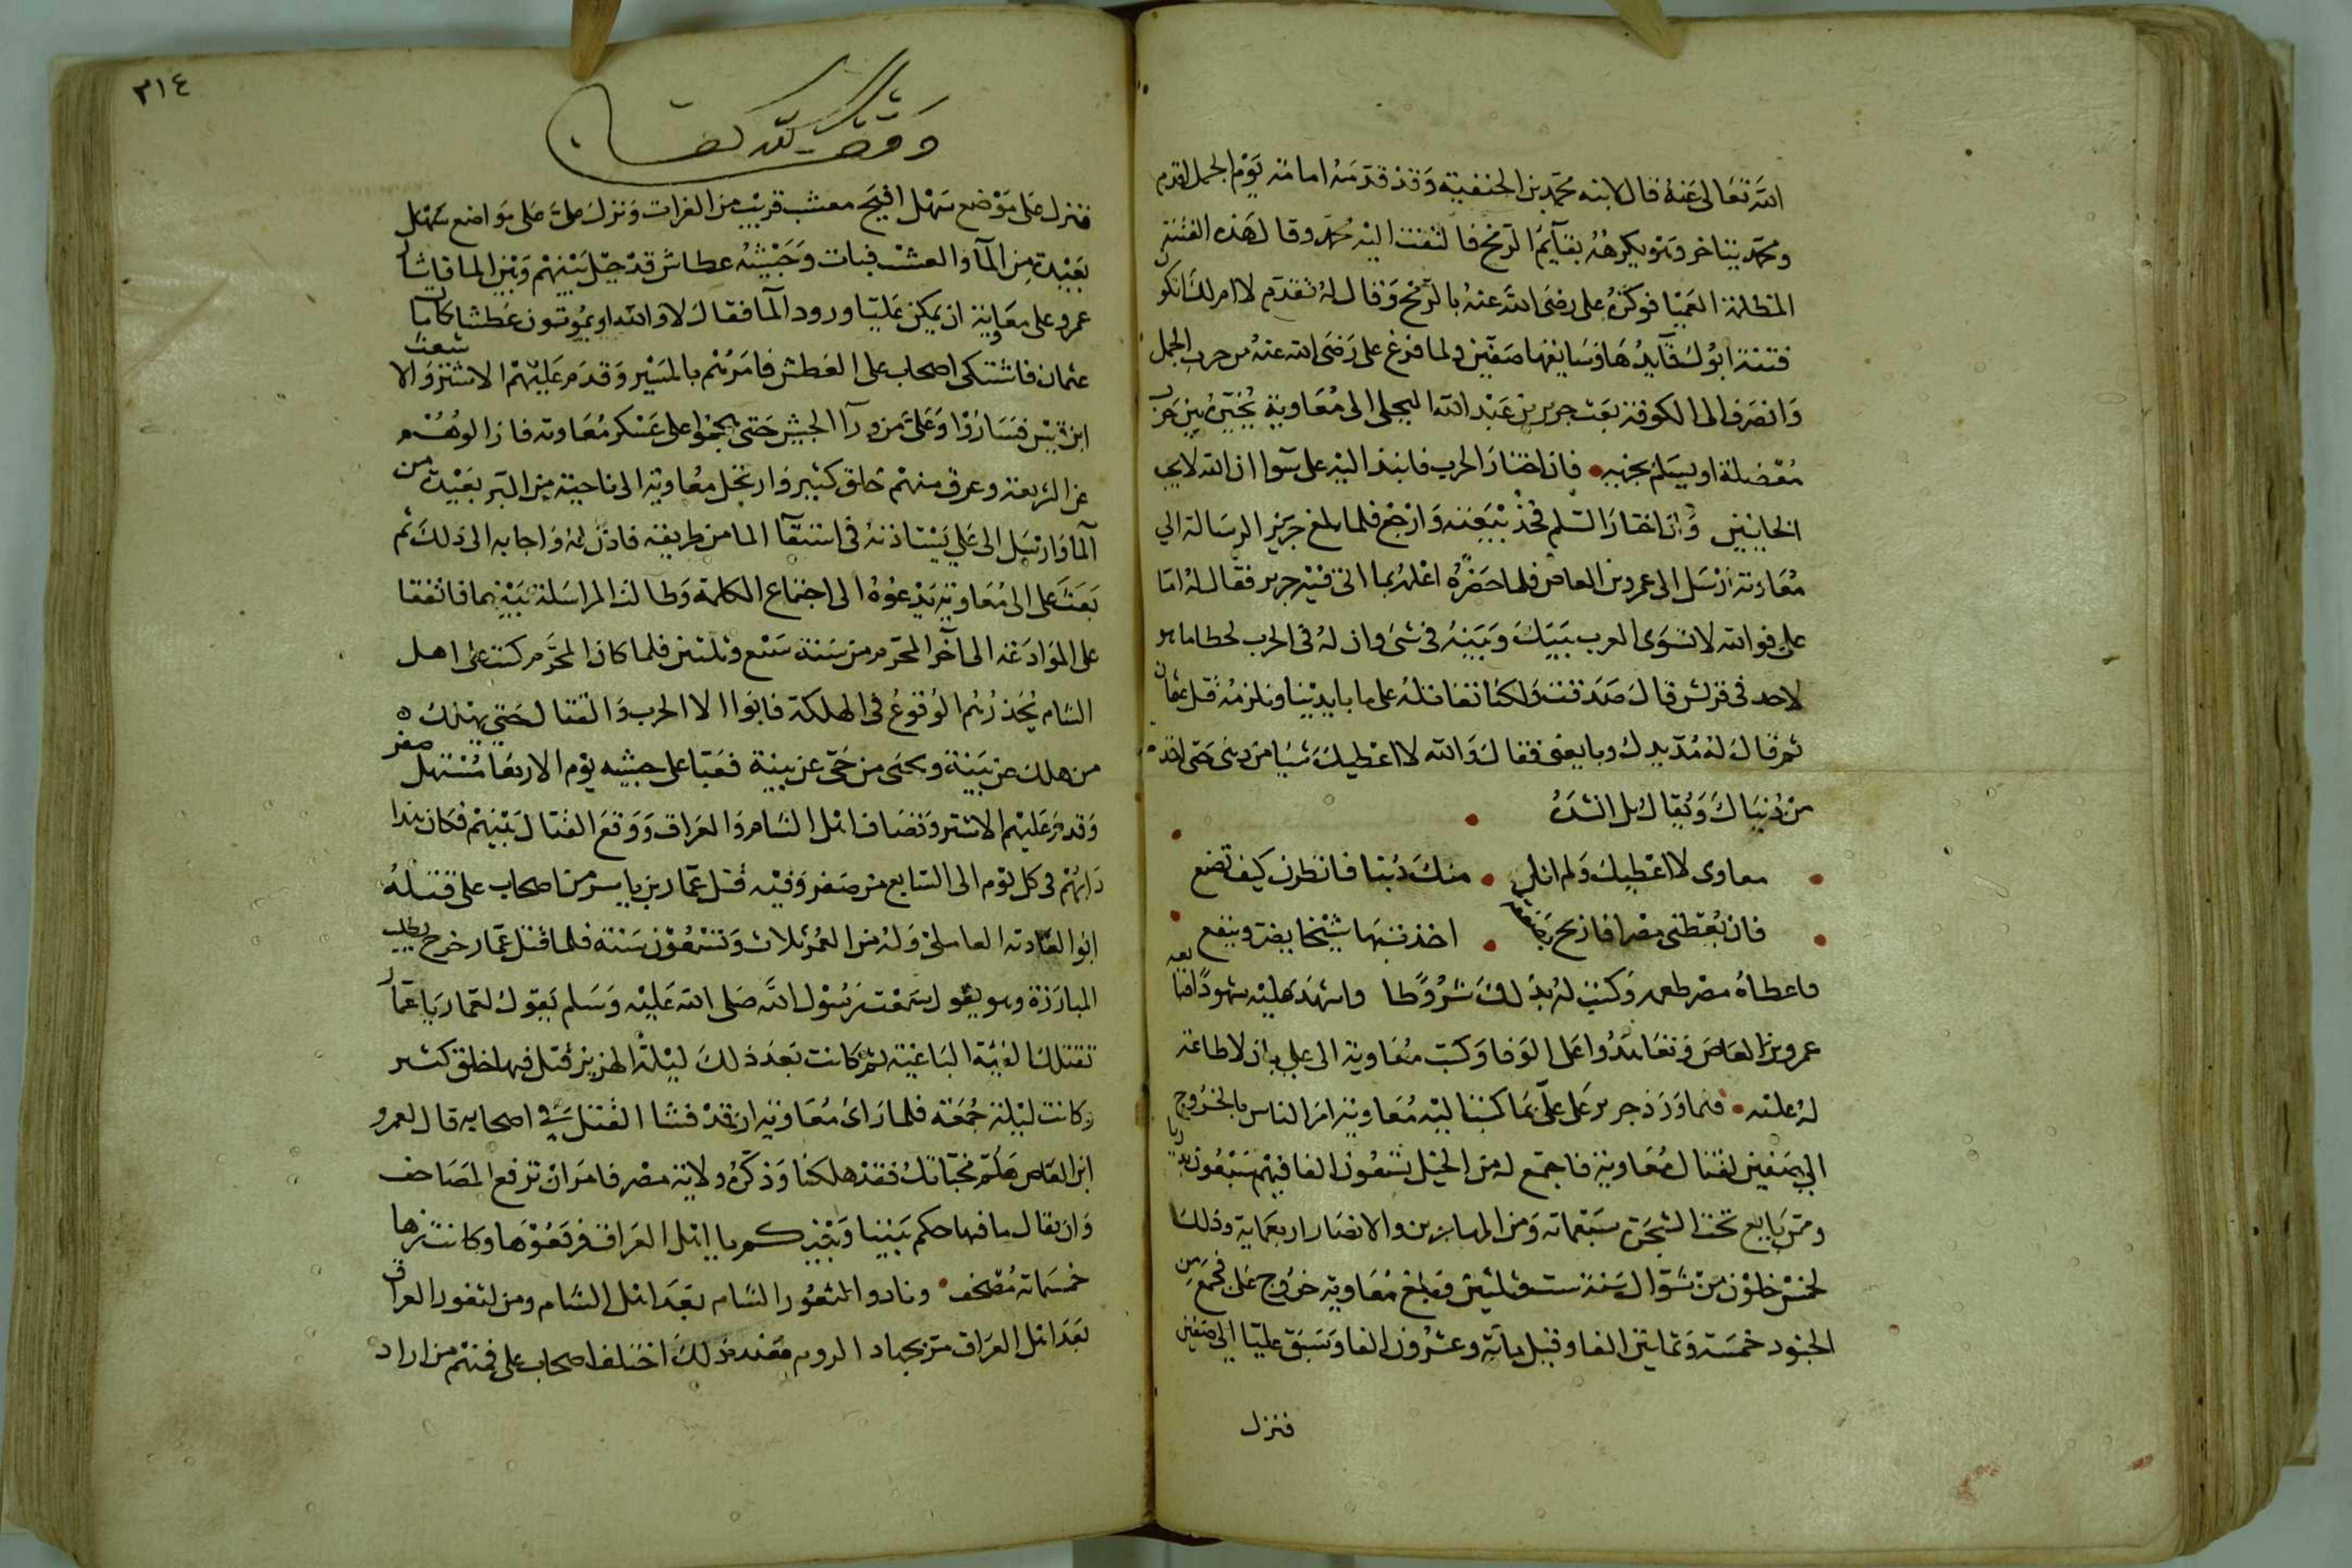 الله تعالى عنه قال لابنه محمد بن الحنفية وقد قدمه امامه يوم الجمل اقدم
ومحمد يتاخر وهو يكرهه بقايم الرمح فالتفت اليه محمد وقال هذه الفتنة
المظلمة العميا فوكزه على رضى الله عنه بالرمح وقال له تقدم لا ام لك اتكون
فتنة ابوك قايدها وسايقها صفين ولما فرغ على رضى الله عنه من حرب الجمل
وانصرف الى الكوفة بعث جرير بن عبد الله البجلى الى معاوية يخيره بين حرب
معضلة او يسلم بجزيه فان اختار الحرب فانبذ اليه على سوا ان الله لا يحب
الخاينين وان اختار السلم فخذ بيعته وارجع فلما بلغ جرير الرسالة الى
معاوية ارسل الى عمرو بن العاص فلما حضره اعلمه بما اتى فيه جرير فقال له اما
على فوالله لا تسوى العرب بينك وبينه فى شى وان له فى الحرب لحظا ما هو
لاحد فى قريش قال صدقت ولكنا نقاتله على ما بايدينا ونلزمه قتل عثمان
ثم قال له مد يدك وبايعنى فقال والله لا اعطيك شيا من دينى حتى اخذ
من دنياك ويقال بل انشده
معاوى لا اعطيك ولم انل منك دنيا فانظرن كيف تصنع
فان تعطنى مصرا فاربح بصفقة اخذت بها شيخا يضر وينفع
فاعطاه مصر طعمه وكتب له بذلك شروطا واشهد عليه شهودا فبايعه
عمرو بن العاص وتعاهدوا على الوفا وكتب معاوية الى على بان لا طاعة
له عليه فلما ورد جرير على على بما كتب اليه معاوية امر الناس بالخروج
الى صفين لقتال معاوية فاجتمع له من الخيل تسعون الفا فيهم سبعون بدريا
وممن بايع تحت الشجرة سبعماية ومن المهاجرين والانصار اربعماية وذلك
لخمس خلون من شوال سنة ست وثلثين فبلغ معاوية خروج على فجمع من
الجنود خمسة وثمانين الفا وقيل ماية وعشرون الفا وسبق عليا الى صفين
فنزل
٣١٤
وقف لله تعالى
فنزل على موضع سهل افيح معشب قريب من الفرات ونزل على على مواضع سهل
بعيدة من الما والعشب فبات وجيشه عطاش قد حيل بينهم وبين الما فاشار
عمرو على معاوية ان يمكن عليا ورود الما فقال لا والله او يموتون عطشا كما مات
عثمان فاشتكى اصحاب على العطش فامرهم بالمسير وقدم عليهم الاشتر والاشعث
ابن قيس فساروا وعلى من ورآ الجيش حتى هجموا على عسكر معاوية فازالوهم
عن الشريعة وغرق منهم خلق كثير وارتحل معاوية الى ناحية من البر بعيدة من
الما وارسل الى على يستاذنه فى استقآ الما من طريقه فاذن له واجابه الى ذلك ثم
بعث على الى معاوية يدعوه الى اجتماع الكلمة وطالت المراسلة بينهما فاتفقا
على الموادعة الى آخر المحرم من سنة سبع وثلثين فلما كان المحرم كتب على اهل
الشام يحذرهم الوقوع فى الهلكة فابوا الا الحرب والقتال حتى يهلك
من هلك عن بينة ويحيى من حى عن بينة فعبا على جيشه يوم الاربعا مستهل صفر
وقدم عليهم الاشتر وتصاف اهل الشام والعراق ووقع القتال بينهم فكان هذا
دابهم فى كل يوم الى السابع من صفر وفيه قتل عمار بن ياسر من اصحاب على قتله
ابو العادية العاملى وله من العمر ثلاث وتسعون سنة فلما قتل عمار خرج يطلب
المبارزة وهو يقول سمعت رسول الله صلى الله عليه وسلم يقول لعمار يا عمار
تقتلك الفية الباغية ثم كانت بعد ذلك ليلة الهرير قتل فيها خلق كثير
وكانت ليلة جمعة فلما راى معاوية ان قد فشا القتل فى اصحابه قال لعمرو
ابن العاص هلم مخباتك فقد هلكنا وذكره ولاية مصر فامر ان ترفع المصاحف
وان يقال ما فيها حكم بيننا وبينكم يا اهل العراق فرفعوها وكانت نزها
خمسماية مصحف ونادوا من لثغور الشام بعد اهل الشام ومن لثغور العراق
بعد اهل العراق من بجهاد الروم فعند ذلك اختلف اصحاب على فمنهم من اراد